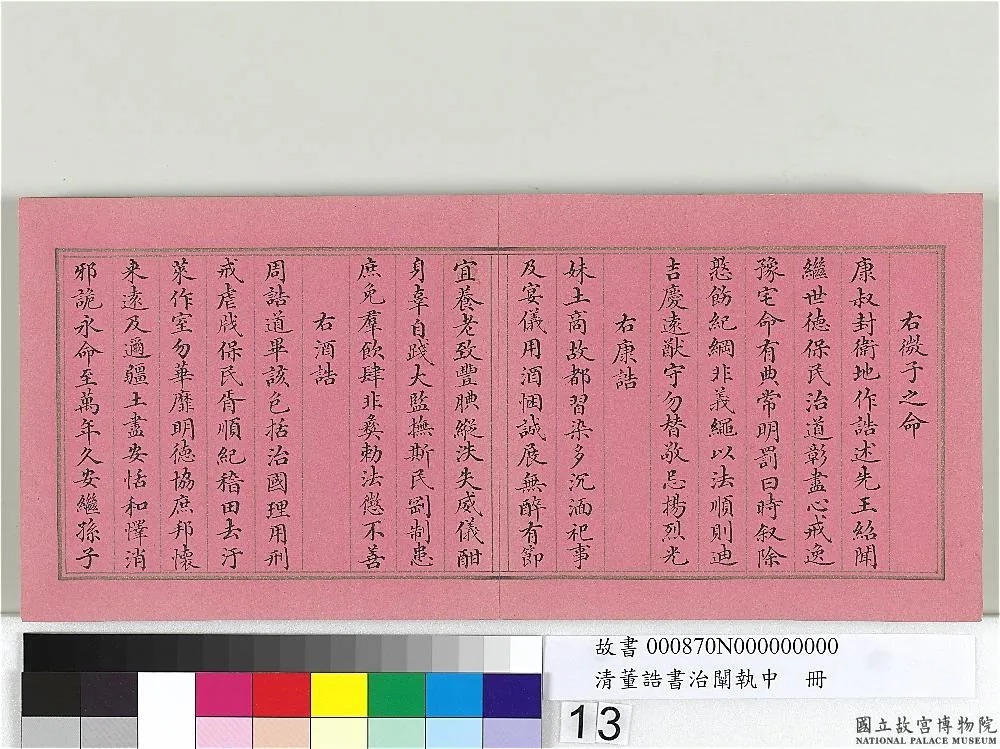 右微子之命
康叔封衛地作誥述先王紹聞
繼世德保民治道彰盡心戒逸
豫宅命有典常明罰曰時叙除
憝飭紀綱非義繩以法順則迪
吉慶遠猷守勿替敬忌揚烈光
右康誥
妹土商故都習染多沉湎祀事
及宴儀用酒悃誠展無醉有節
宜養老致豐腆縱泆失威儀酣
身辜自踐大監撫斯民剛制患
庶免羣飲肆非彝勑法懲不善
右酒誥
周誥道畢該包括治國理用刑
戒虐戕保民胥順紀稽田去汙
萊作室勿華靡明德協庶邦懷
來遠及邇疆土盡安恬和懌消
邪詭永命至萬年久安繼孫子
故書 000870N000000000
清董誥書治闈執中 冊
13
國立故宮博物院
NATIONAL PALACE MUSEUM